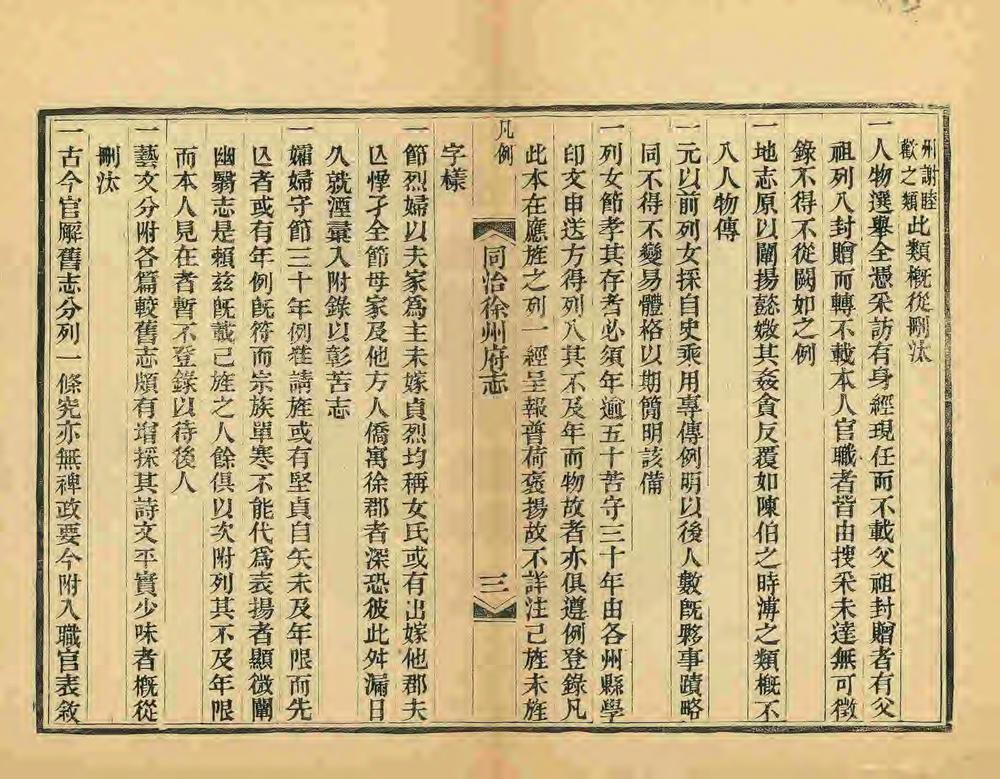 州謝睦
歡之類此類槪從刪汰
一人物選舉全憑采訪有身經現任而不載父祖封贈者有父
祖列入封贈而轉不載本人官職者皆由搜采未達無可徵
錄不得不從闕如之例
一地志原以闡揚懿媺其姦貪反覆如陳伯之時溥之類槪不
入人物傳
一元以前列女採自史乘用專傳例明以後人數旣夥事蹟略
同不得不變易體格以期簡明該備
一列女節孝其存者必須年逾五十苦守三十年由各州縣學
印文申送方得列入其不及年而物故者亦俱遵例登錄凡
此本在應旌之列一經呈報普荷褒揚故不詳注已旌未旌
凡例
同治徐州府志
三
字樣
一節烈婦以夫家爲主未嫁貞烈均稱女氏或有出嫁他郡夫
亾惸孑全節母家及他方人僑寓徐郡者深恐彼此舛漏日
久就湮彙入附錄以彰苦志
一孀婦守節三十年例准請旌或有堅貞自矢未及年限而先
亾者或有年例旣符而宗族單寒不能代爲表揚者顯微闡
幽翳志是賴茲旣載已旌之人餘俱以次附列其不及年限
而本人見在者暫不登錄以待後人
一藝文分附各篇較舊志頗有增採其詩文平實少味者槪從
刪汰
一古今官廨舊志分列一條究亦無裨政要今附入職官表敘